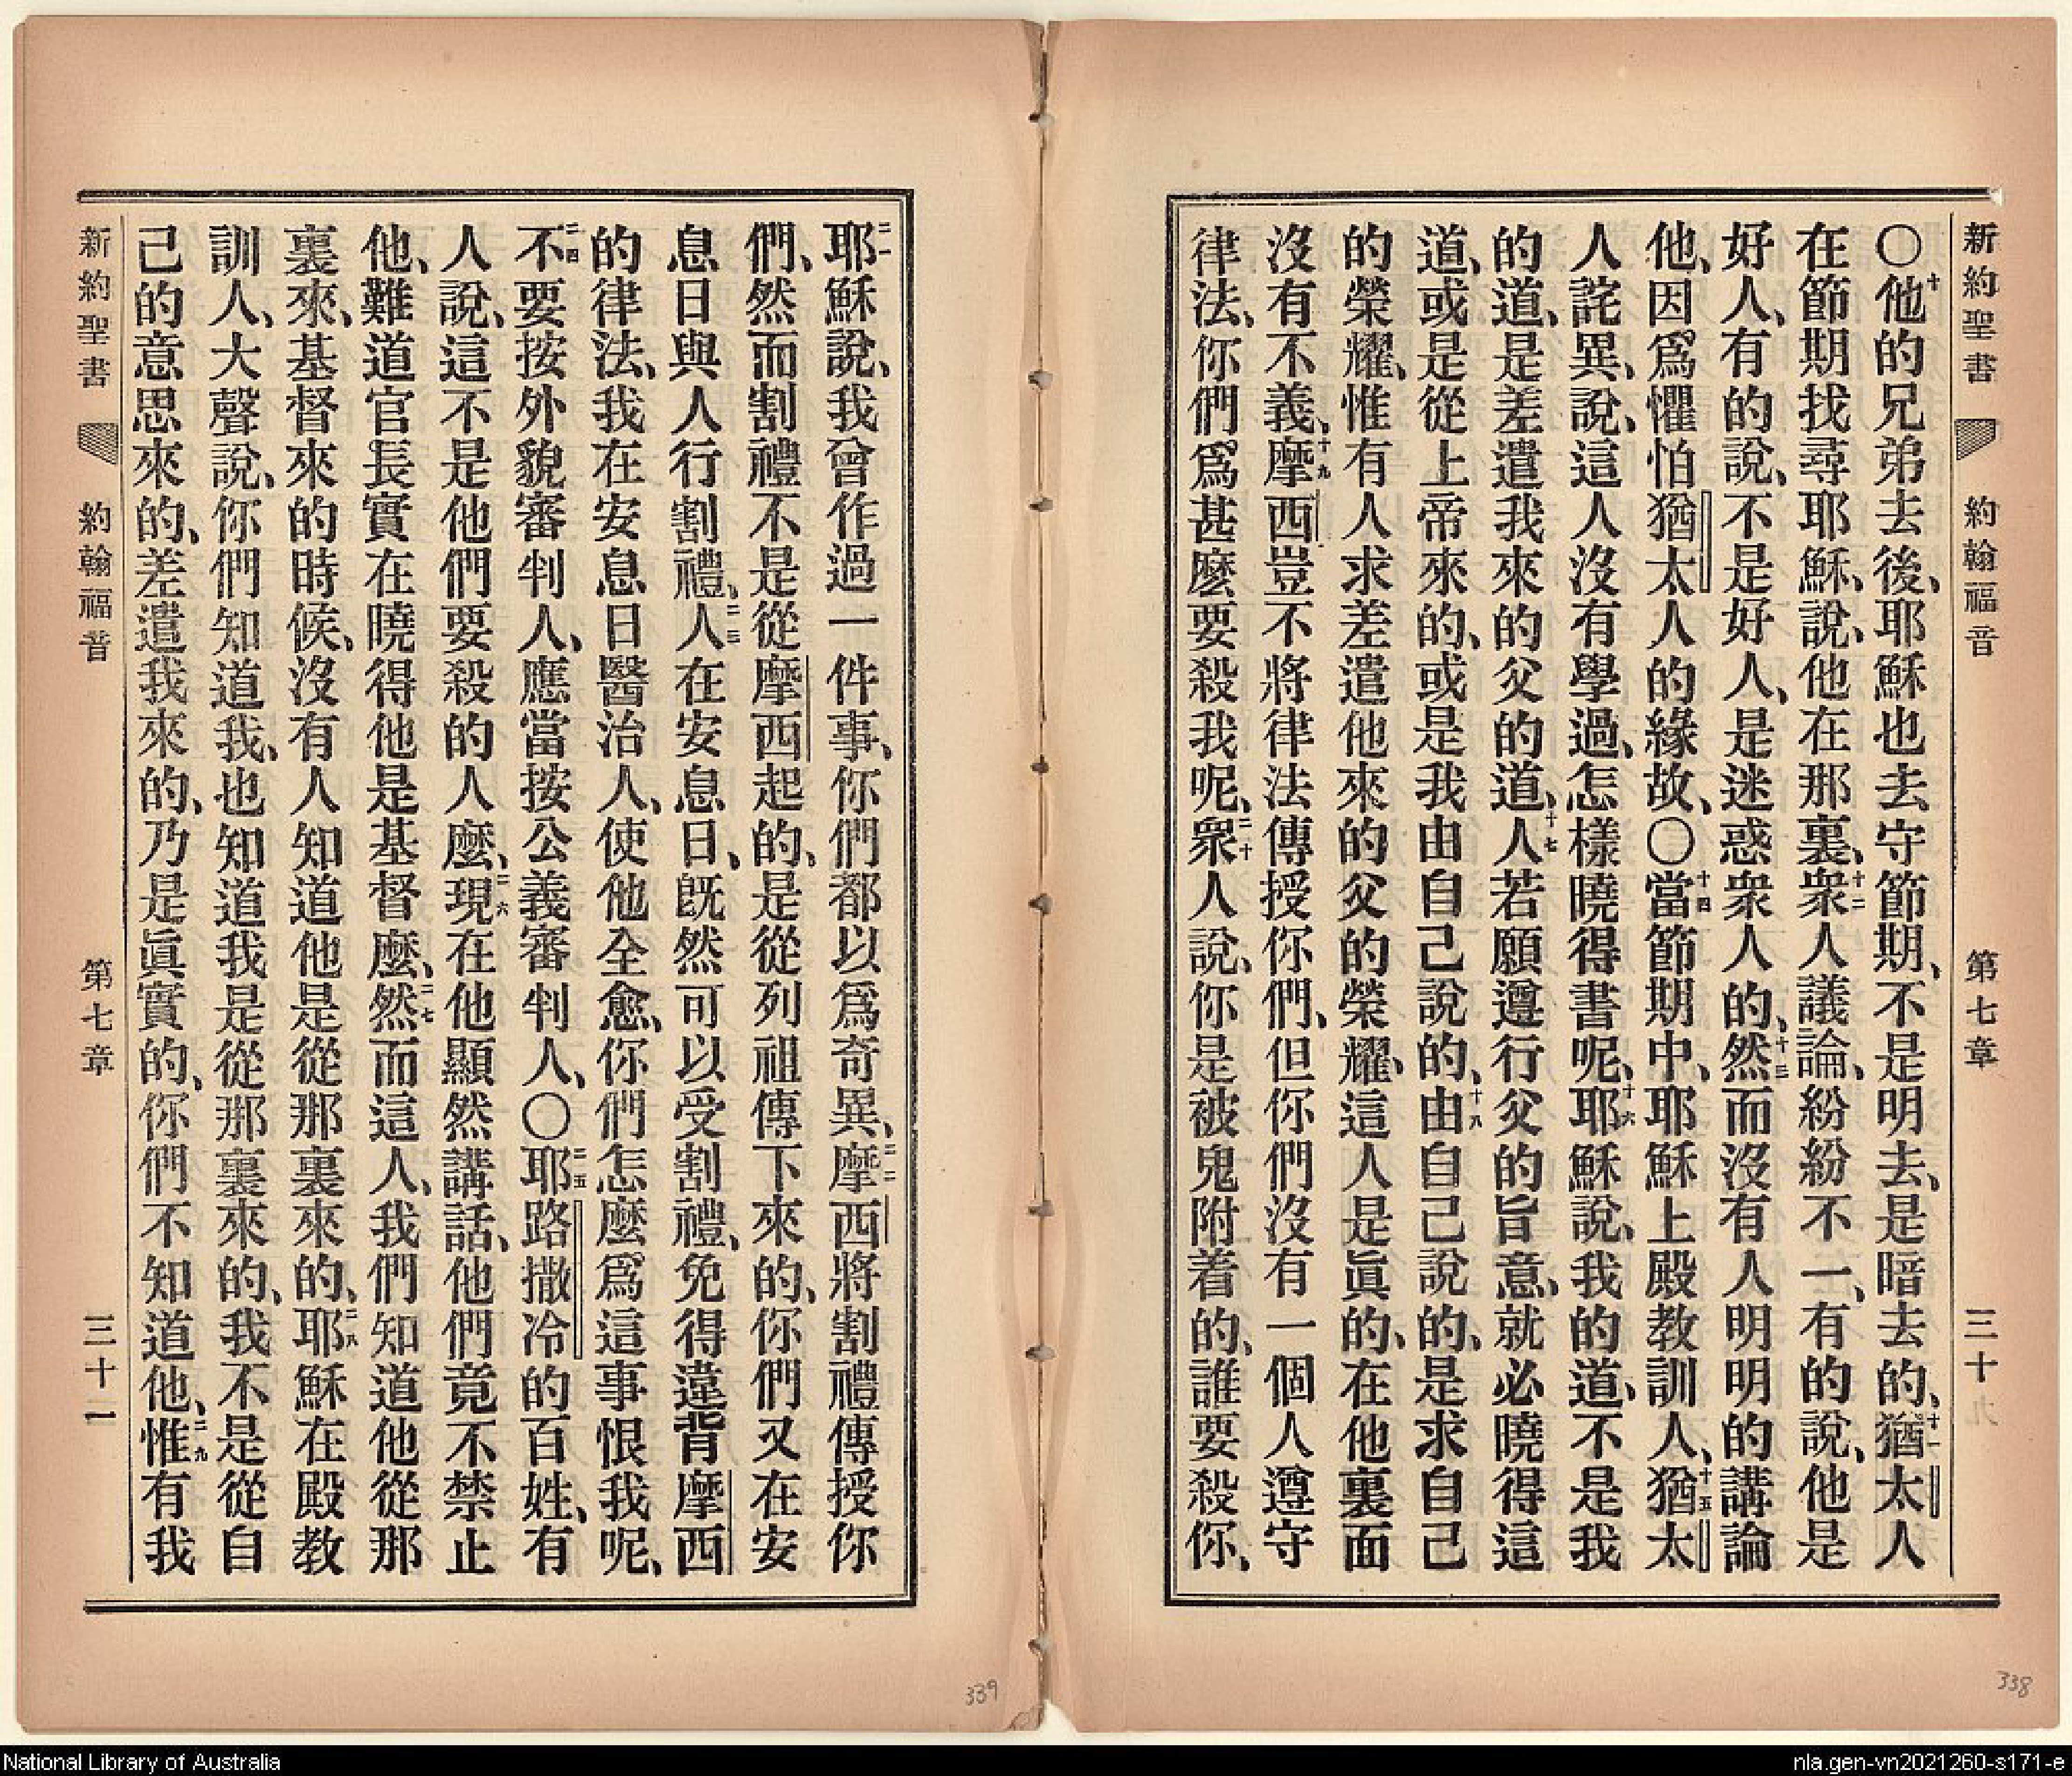 新約聖書 約翰福音 第七章 三十
〇十他的兄弟去後、耶穌也去守節期、不是明去、是暗去的、十一猶太人
在節期找尋耶穌、說、他在那裏、十二衆人議論、紛紛不一、有的說、他是
好人、有的說、不是好人、是迷惑衆人的、十三然而沒有人明明的講論
他、因爲懼怕猶太人的緣故、〇十四當節期中、耶穌上殿教訓人、十五猶太
人詫異、說、這人沒有學過、怎樣曉得書呢、十六耶穌說、我的道、不是我
的道、是差遣我來的父的道、十七人若願遵行父的旨意、就必曉得這
道、或是從上帝來的、或是我由自己說的、十八由自己說的、是求自己
的榮耀、惟有人求差遣他來的父的榮耀、這人是眞的、在他裏面
沒有不義、十九摩西豈不將律法傳授你們、但你們沒有一個人遵守
律法、你們爲甚麽要殺我呢、二十衆人說、你是被鬼附着的、誰要殺你、
338
二一耶穌說、我曾作過一件事、你們都以爲奇異、二二摩西將割禮傳授你
們、然而割禮不是從摩西起的、是從列祖傳下來的、你們又在安
息日與人行割禮、二三人在安息日、旣然可以受割禮、免得違背摩西
的律法、我在安息日醫治人、使他全愈、你們怎麽爲這事恨我呢、
二四不要按外貌審判人、應當按公義審判人、〇二五耶路撒冷的百姓、有
人說、這不是他們要殺的人麽、二六現在他顯然講話、他們竟不禁止
他、難道官長實在曉得他是基督麽、二七然而這人、我們知道他從那
裏來、基督來的時候、沒有人知道他是從那裏來的、二八耶穌在殿教
訓人、大聲說、你們知道我、也知道我是從那裏來的、我不是從自
己的意思來的、差遣我來的、乃是眞實的、你們不知道他、二九惟有我
新約聖書 約翰福音 第七章 三十一
339
National Library of Australia
nla.gen-vn2021260-s171-e